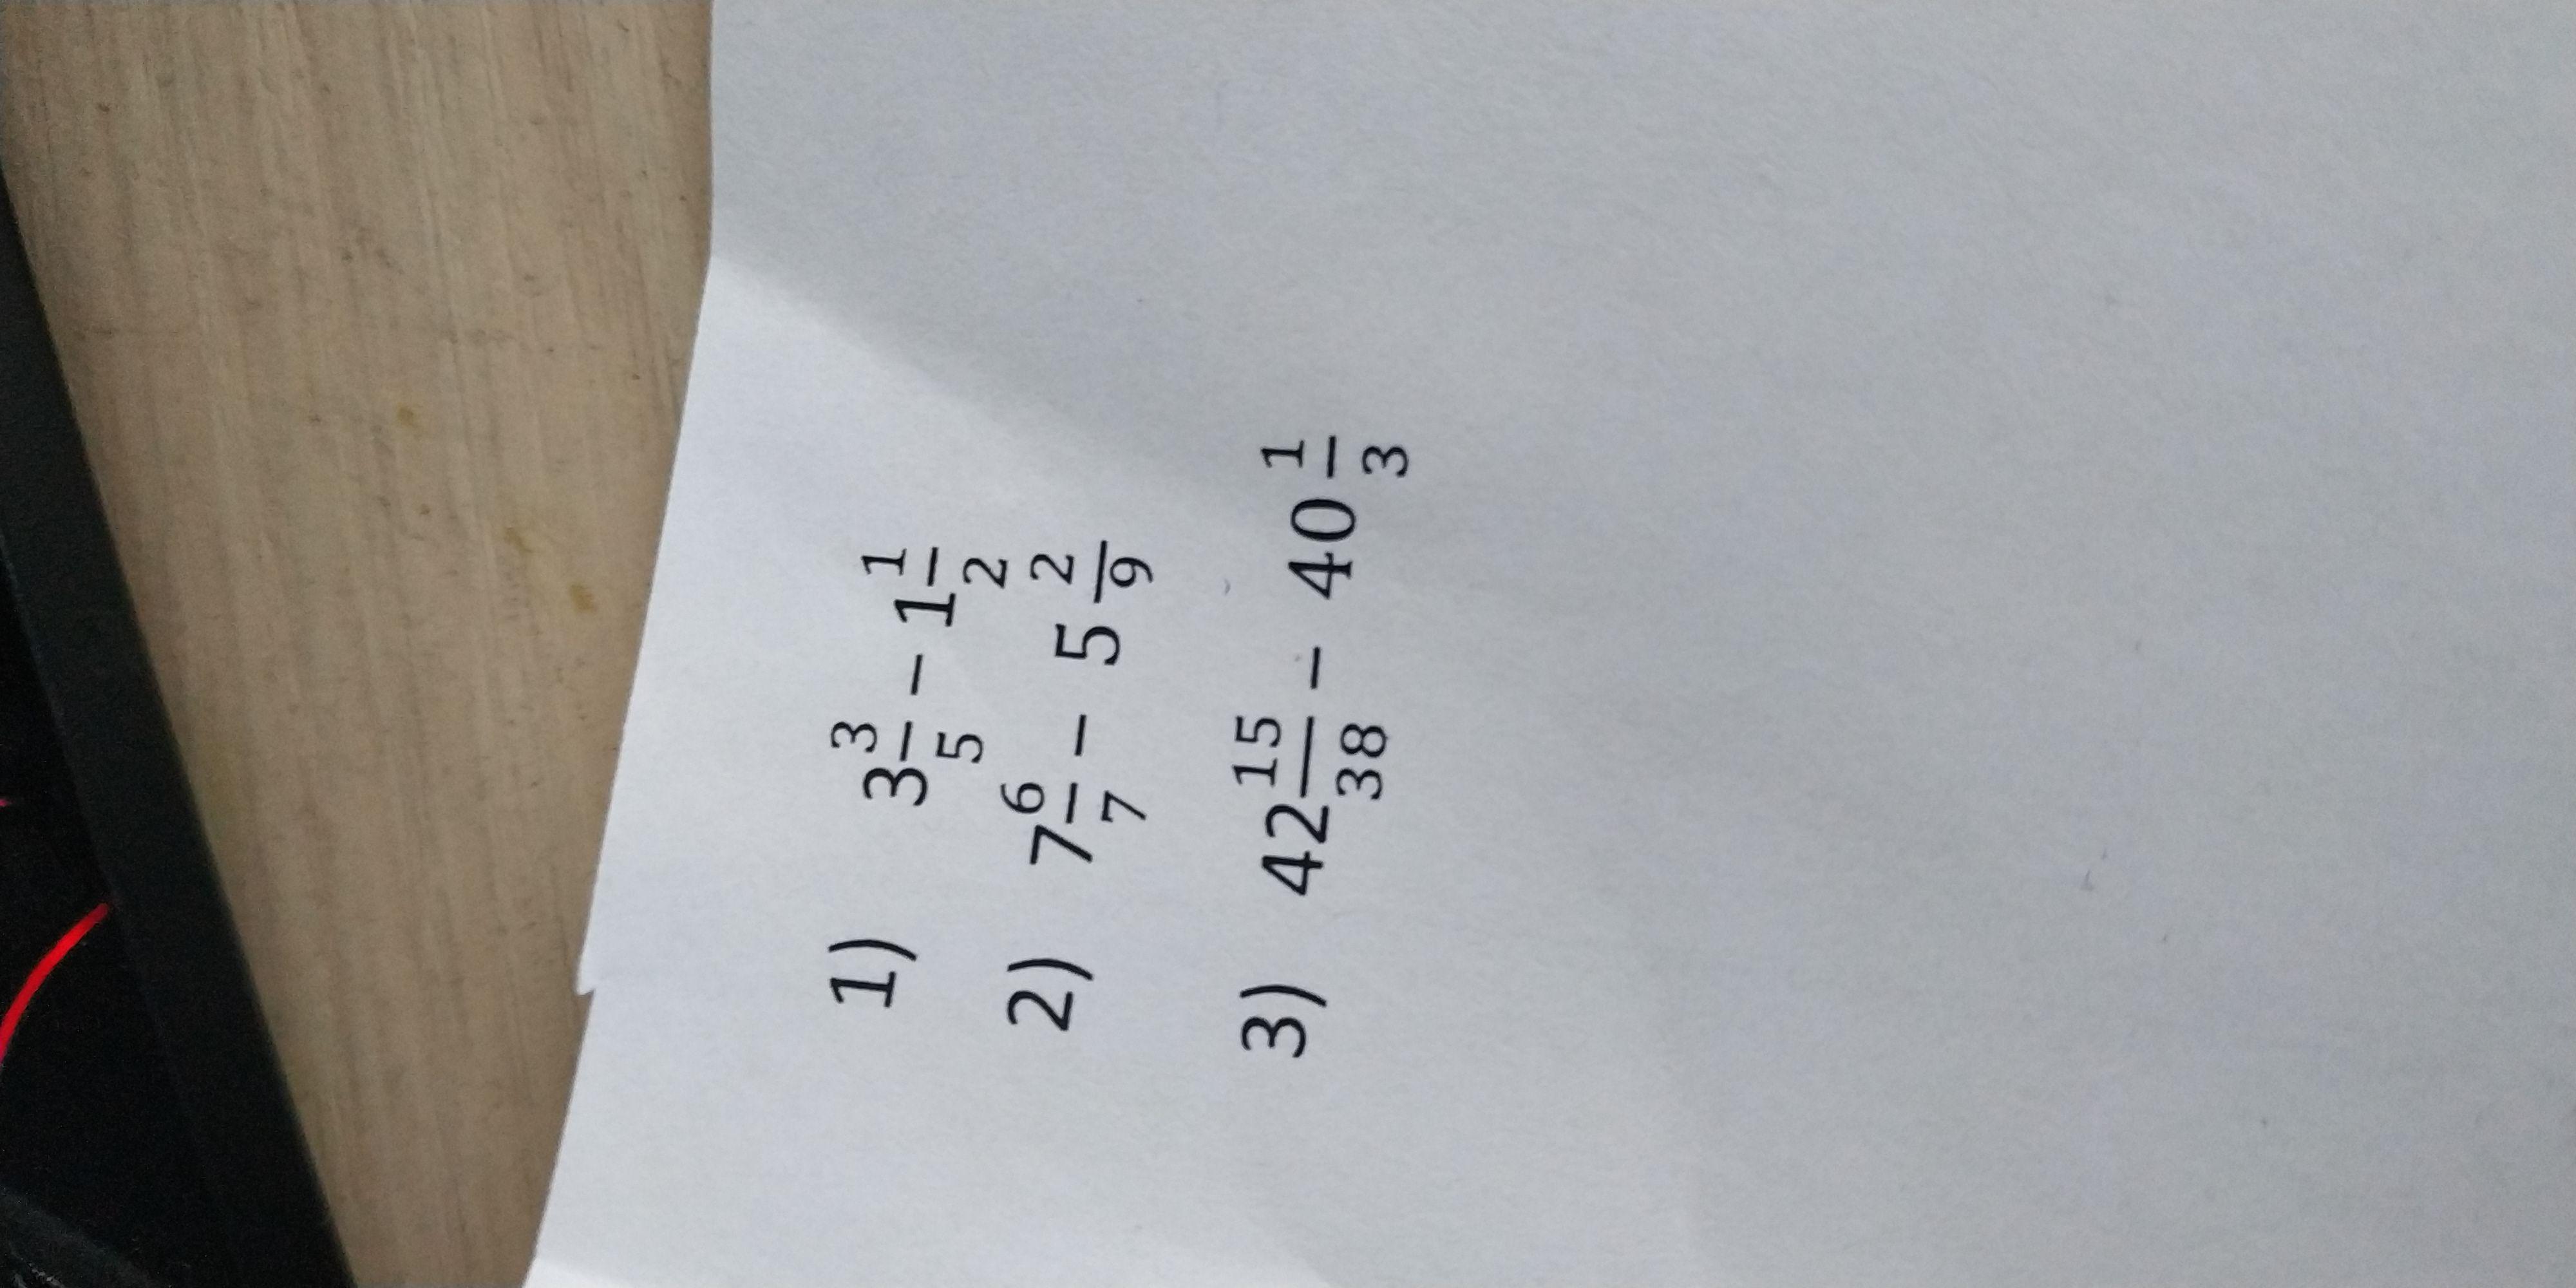 1) 3 3/5 – 1 1/2
2) 7 6/7 – 5 2/9
3) 42 15/38 – 40 1/3